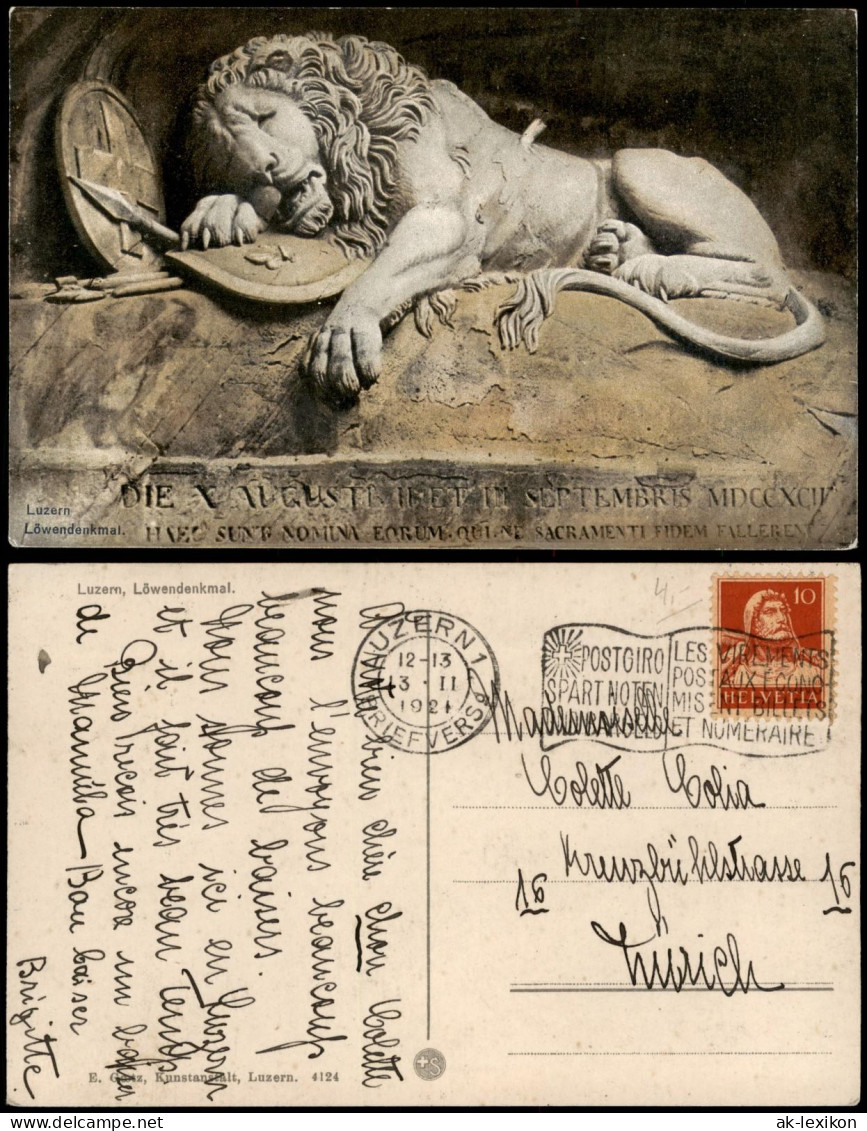 Luzern
Löwendenkmal.
DIE X AUGUSTI II ET III SEPTEMBRIS MDCCXCII
HAEC SUNT NOMINA EORUM QUI NE SACRAMENTI FIDEM FALLERENT
Luzern, Löwendenkmal.
41-
LUZERN 1
12-13
3·II
1921
BRIEFVERS
POSTGIRO
SPART NOTEN
LES VIREMENTS
POSTAUX ÉCONO
MISENT BILLETS
ET NUMERAIRE
10
HELVETIA
bien chère chou Colette
nous t'envoyons beaucoup
beaucoup de baisers.
Nous sommes ici en Luzern
et il fait très beau Temps
Bien reçois encore un baiser
de Mamúka - Bon baiser
Brigitte.
Mademoiselle
Colette Colia
Kreuzbühlstrasse
16 16
Zürich
E. Goetz, Kunstanstalt, Luzern. 4124
+S
ak-lexikon